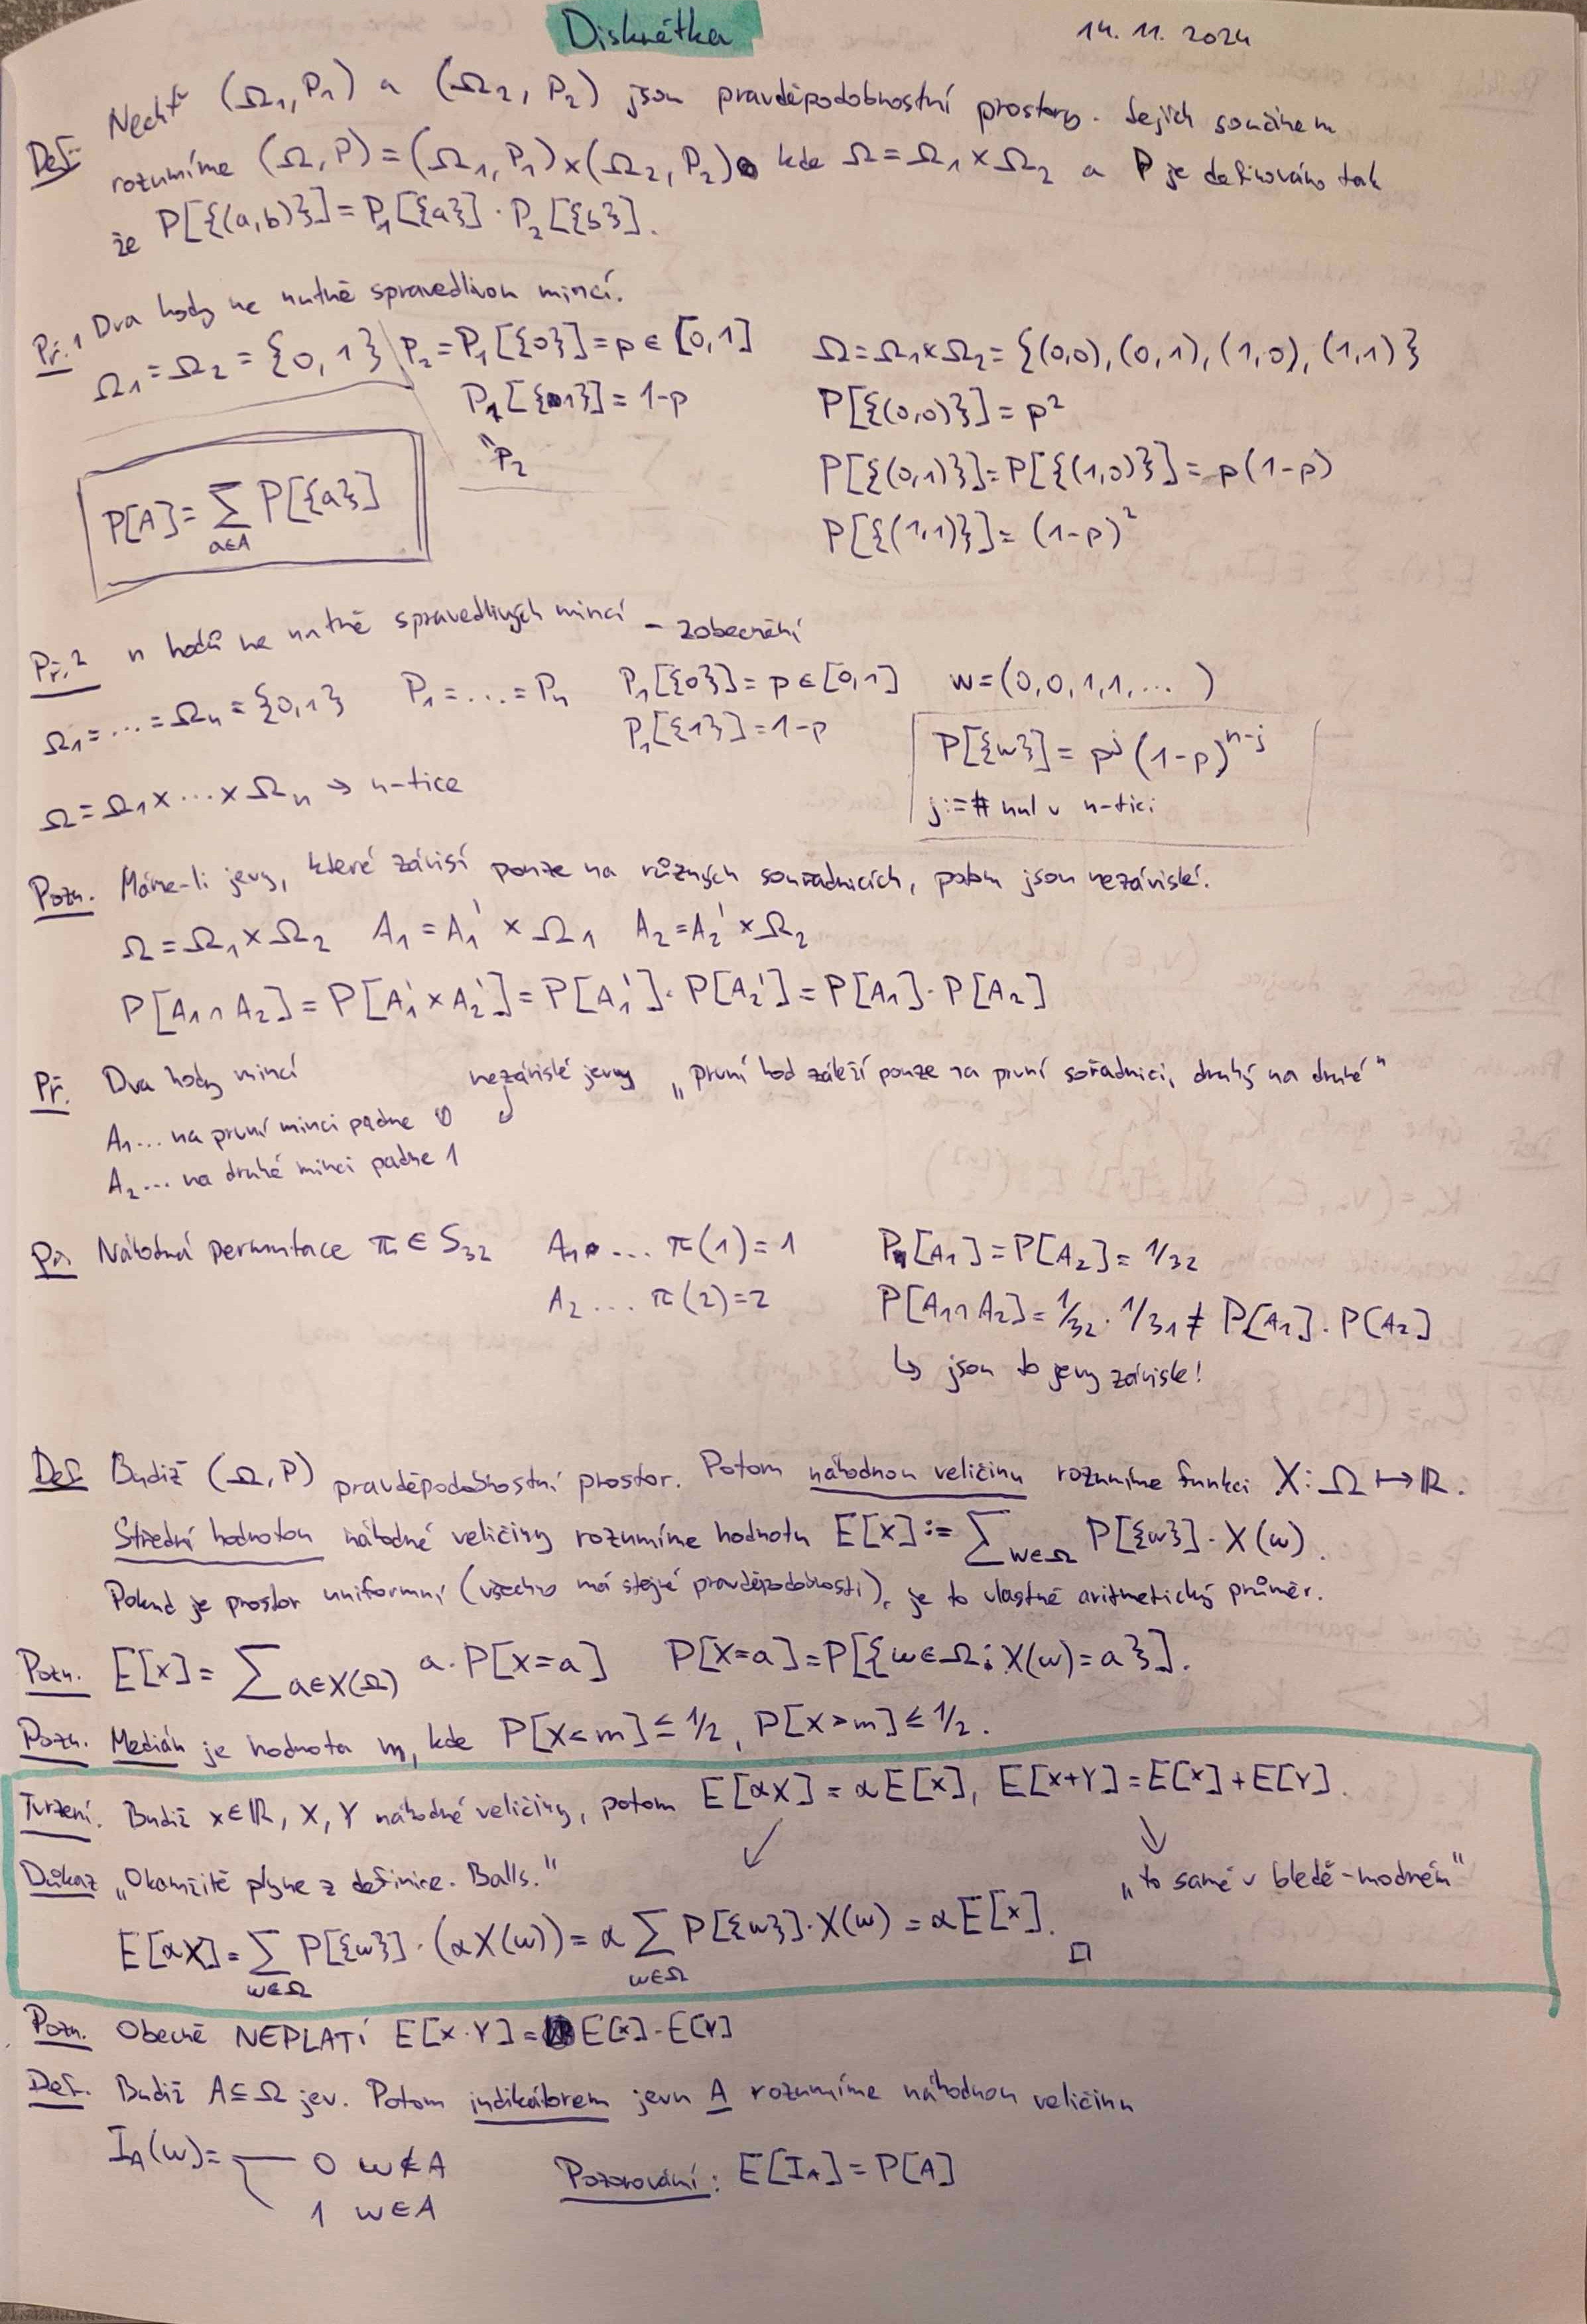 Diskrétka
14. 11. 2024
Def: Nechť (Ω₁, P₁) a (Ω₂, P₂) jsou pravděpodobnostní prostory. Jejich součinem
rozumíme (Ω, P) = (Ω₁, P₁) × (Ω₂, P₂), kde Ω = Ω₁ × Ω₂ a P je definováno tak
že P[{(a,b)}] = P₁[{a}] · P₂[{b}].
Př.1 Dva hody ne nutně spravedlivou mincí.
Ω₁ = Ω₂ = {0,1} P₂ = P₁[{0}] = p ∈ [0,1]
P₁[{1}] = 1-p
"P₂
Ω = Ω₁×Ω₂ = {(0,0), (0,1), (1,0), (1,1)}
P[{(0,0)}] = p²
P[{(0,1)}] = P[{(1,0)}] = p(1-p)
P[{(1,1)}] = (1-p)²
P[A] = ∑ P[{a}]
a∈A
Př.2 n hodů ne nutně spravedlivých mincí - zobecnění
Ω₁ = ... = Ωₙ = {0,1} P₁ = ... = Pₙ P₁[{0}] = p ∈ [0,1] w = (0,0,1,1,...)
P₁[{1}] = 1-p
P[{w}] = pʲ (1-p)ⁿ⁻ʲ
Ω = Ω₁ × ... × Ωₙ → n-tice
j := # nul v n-tici
Pozn. Máme-li jevy, které závisí pouze na různých souřadnicích, potom jsou nezávislé.
Ω = Ω₁ × Ω₂ A₁ = A₁' × Ω₁ A₂ = A₂' × Ω₂
P[A₁∩A₂] = P[A₁' × A₂'] = P[A₁'] · P[A₂'] = P[A₁] · P[A₂]
Př. Dva hody mincí nezávislé jevy „první hod záleží pouze na první sořadnici, druhý na druhé"
A₁ ... na první minci padne 0
A₂ ... na druhé minci padne 1
Př. Náhodná permutace π ∈ S₃₂ A₁ ... π(1) = 1 P[A₁] = P[A₂] = 1/32
A₂ ... π(2) = 2 P[A₁∩A₂] = 1/32 · 1/31 ≠ P[A₁] · P[A₂]
↳ jsou to jevy závislé!
Def. Budiž (Ω, P) pravděpodobnostní prostor. Potom náhodnou veličinu rozumíme funkci X: Ω ↦ ℝ.
Střední hodnotou náhodné veličiny rozumíme hodnotu E[X] := ∑ w∈Ω P[{w}] · X(w).
Pokud je prostor uniformní (všechno má stejné pravděpodobnosti), je to vlastně aritmetický průměr.
Pozn. E[X] = ∑ a∈X(Ω) a · P[X=a] P[X=a] = P[{w∈Ω; X(w)=a}].
Pozn. Medián je hodnota m, kde P[X<m] ≤ 1/2, P[X>m] ≤ 1/2.
Tvrzení. Budiž x∈ℝ, X, Y náhodné veličiny, potom E[αX] = αE[X], E[X+Y] = E[X] + E[Y].
Důkaz „Okamžitě plyne z definice. Balls."
„to samé v bledě-modrém"
E[αX] = ∑ P[{w}] · (αX(w)) = α ∑ P[{w}] · X(w) = αE[X]. □
w∈Ω w∈Ω
Pozn. Obecně NEPLATÍ E[X·Y] = E[X] · E[Y]
Def. Budiž A ⊆ Ω jev. Potom indikátorem jevu A rozumíme náhodnou veličinu
I_A(w) = 0 w∉A
1 w∈A
Pozorování: E[I_A] = P[A]